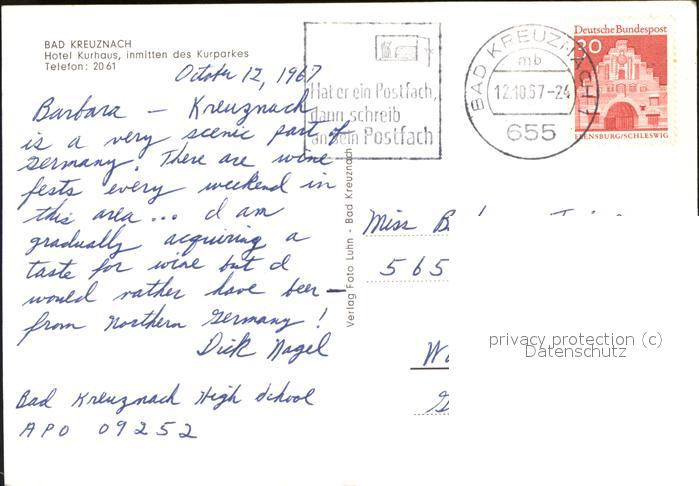 BAD KREUZNACH
Hotel Kurhaus, inmitten des Kurparkes
Telefon: 2061
October 12, 1967
Barbara — Kreuznach
is a very scenic part of
Germany. There are wine
fests every weekend in
this area... I am
gradually acquiring a
taste for wine but I
would rather have beer —
from Northern Germany!
Dick Nagel
Bad Kreuznach High School
APO 09252
Verlag Foto Luhn - Bad Kreuznach
Hat er ein Postfach,
dann schreib
an sein Postfach
BAD KREUZNACH 1
mb
12.10.67-24
655
Deutsche Bundespost
30
FLENSBURG/SCHLESWIG
Miss
565
privacy protection (c)
Datenschutz